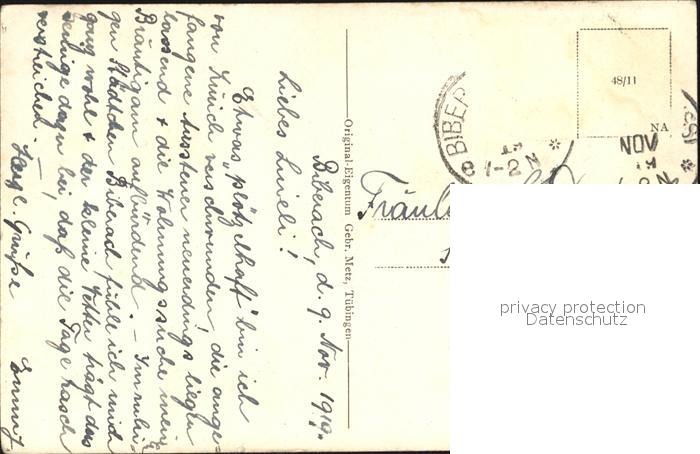 Biberach, d. 9. Nov. 1919.
Liebes Lineli!
Etwas "plötzlhaft" bin ich
von Zürich verschwunden, die ange-
fangene Aussteuer neuerdings liegen
lassend & die Wohnungssuche mein
Bräutigam aufbürdend. – Im
gen Städtchen Biberach fühle ich mich
ganz wohl & der kleine trägt das
seinige dazu bei, daß die Tage rasch
vergleichen. – Herzl. Grüße
Emmy
Original-Eigentum Gebr. Metz, Tübingen
48/11
NA
BIBER
19 *
1-2 N
NOV
19 *
2 N
Fräul
privacy protection
Datenschutz